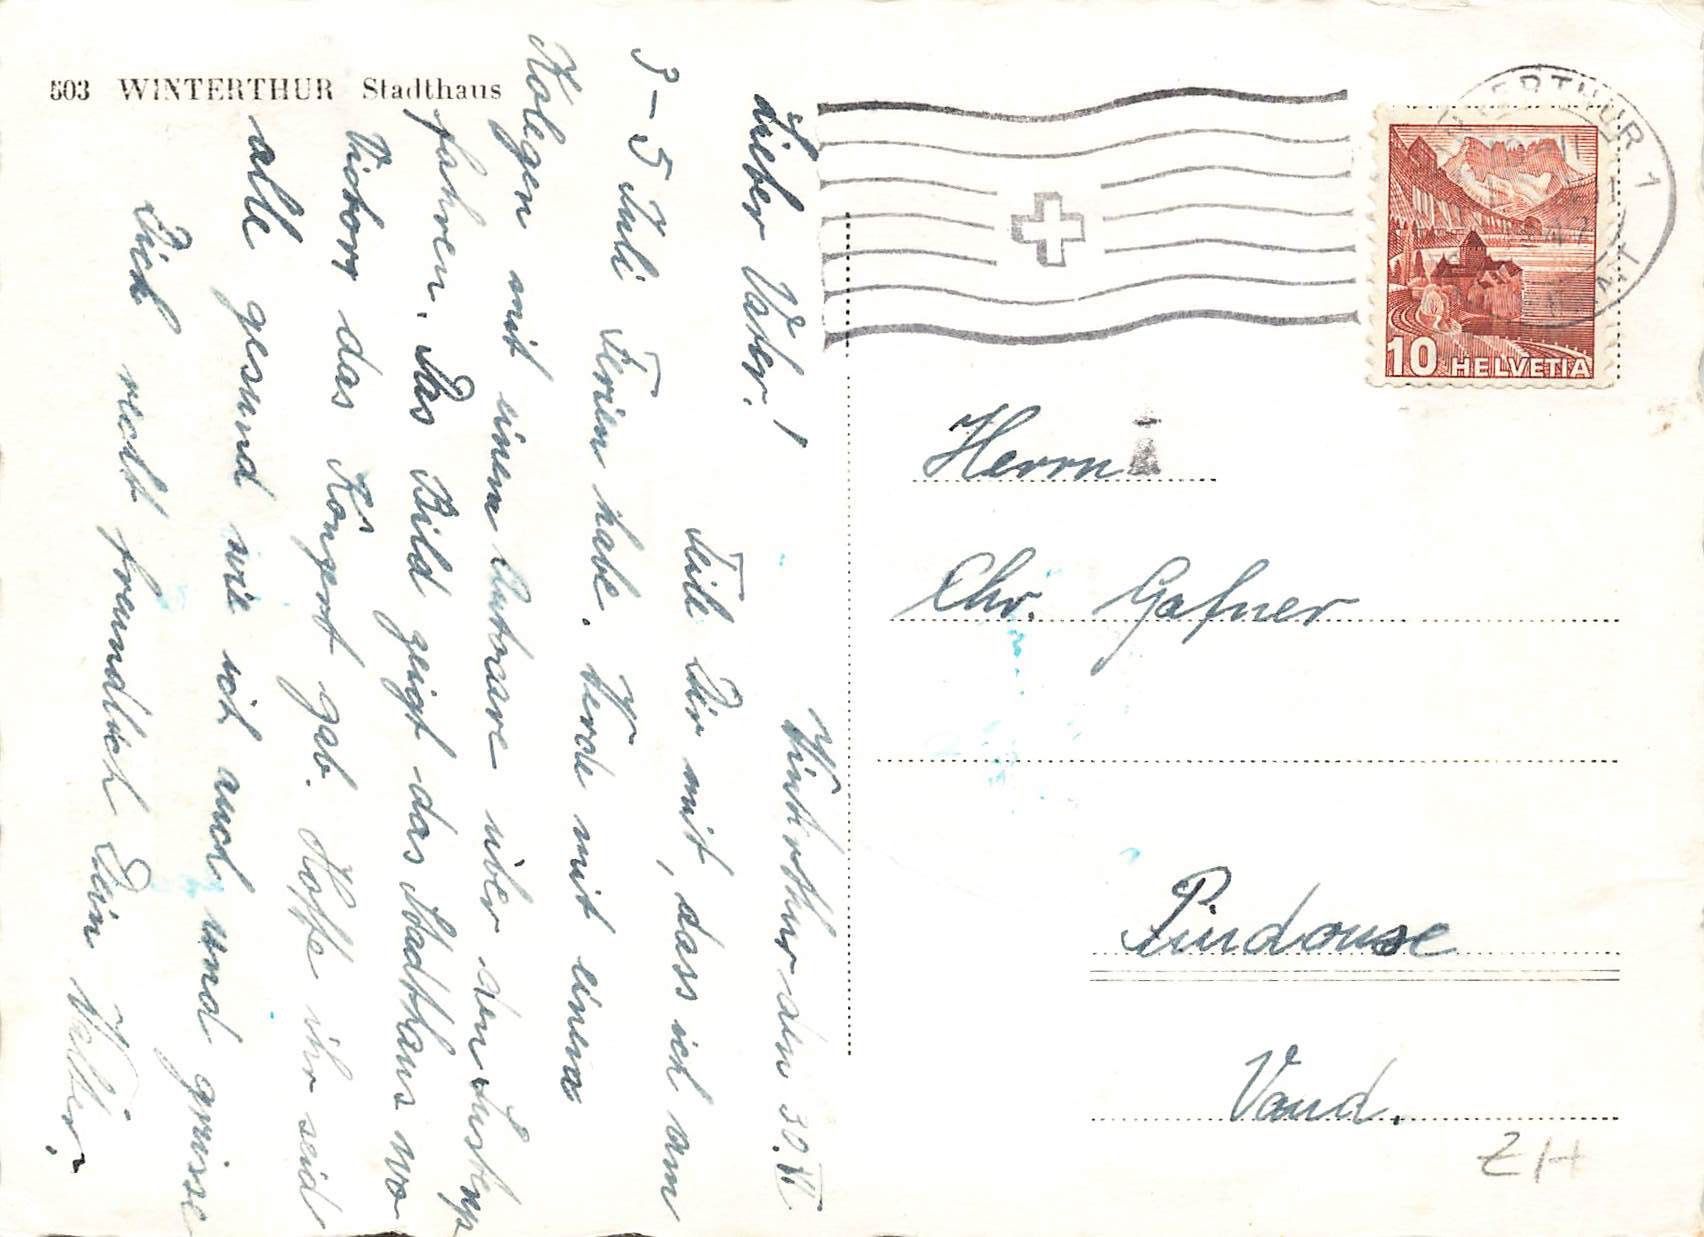 503 WINTERTHUR Stadthaus
Winterthur den 30. VI
Lieber Vater!
Teile Dir mit, dass ich am
3-5 Juli Ferien habe. Werde mit einem
Kolegen mit einem Autocare über den Susten
fahren. Das Bild zeigt das Stadthaus wo
Victory das Konzert gab. Hoffe ihr seid
alle gesund wie ich auch und grüsse
Dich recht freundlich Dein Walter.
WINTERTHUR 1
10 HELVETIA
Herrn
Chr. Gafner
Vaud.
ZH